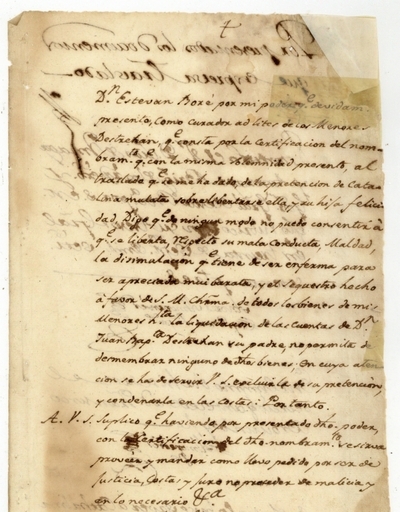 Por presentados los documentos
que expresa Traslado
Dn. Estevan Boré por mi poder y
presento, como curador ad lites de los Menores
Destrehan, qe. consta por la Certificacion del nom-
bram.to qe. con la misma solemnidad presento, al
traslado qe. se me ha dado, de la pretencion de Cata-
lina mulata sobre libertarse ella, y su hija felici-
dad, Digo qe. de ningun modo no puedo consentir à
qe. se liberta, Respecto su mala Conducta, Maldad,
la disimulacion qe. tiene de ser enferma para
ser apreciada mui barata, y el sequestro hecho
à favor de S. M. Chrma. de todos los bienes de mis
Menores hta. la liquidacion de las cuentas de Dn.
Juan Bapta. Destrehan su padre, no permite de
desmembrar ninguno de dhos bienes: En cuya aten-
cion se ha de servir V. S. excluirla de su pretencion,
y condenarla en las Costas: Por tanto.
A. V. S. suplico qe. haviendo por presentado dho. poder,
con la Certificacion del dho. nombram.to se sirva
proveer y mandar como llevo pedido por ser de
Justicia, Costas y juro no proceder de malicia y
en lo necesario &a